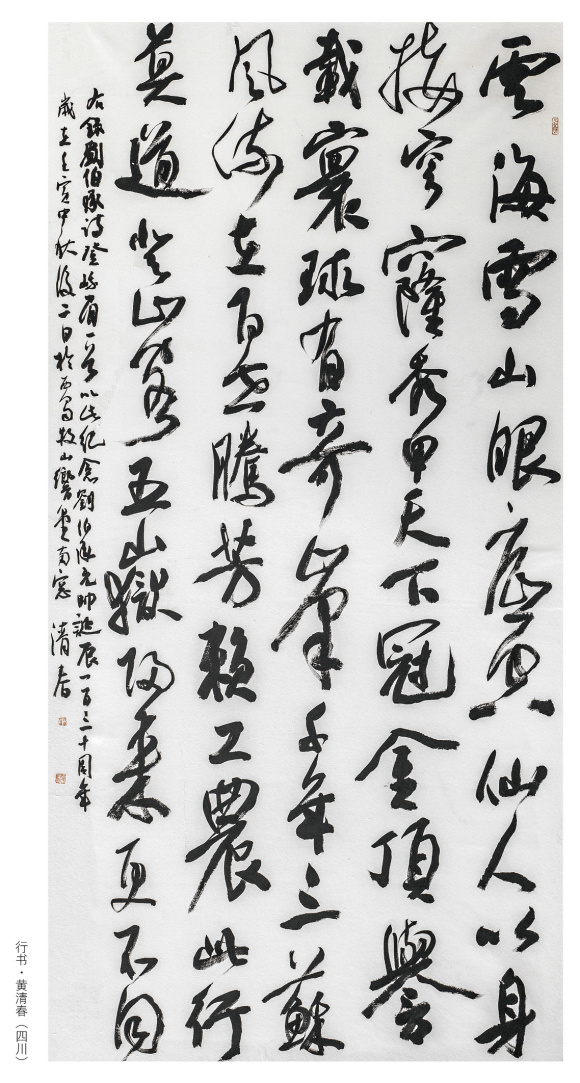 雲海雪山眼底空仙人以身
接穹窿秀甲天下冠金頂譽
載寰球有奇峯千年三蘇
風流在百世騰芳賴工農此行
莫道登山五嶽歸來更不同
右錄劉伯承詩登峨眉一首以此紀念劉伯承元帥誕辰一百三十周年
歲在壬寅中秋後二日於牧山響堂南窗 清春
行书·黄清春（四川）